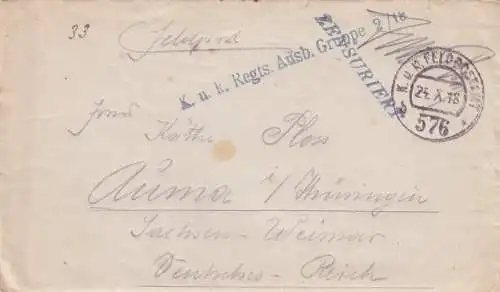 33
Feldpost
2/18
K. u. k. Regts. Ausb. Gruppe
ZENSURIERT
K. u. K. FELDPOSTAMT
24. X. 18
b
576
Käthe Ploss
Auma i/Thüringen
Sachsen-Weimar
Deutsches-Reich